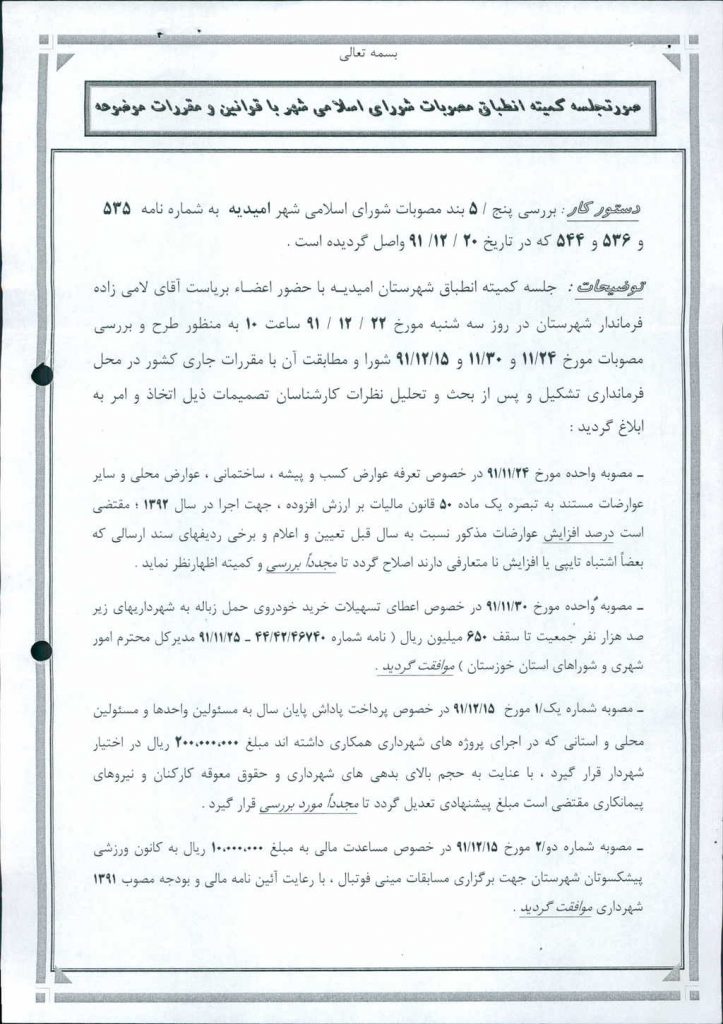 بسمه تعالی
صورتجلسه کمیته انطباق مصوبات شورای اسلامی شهر با قوانین و مقررات موضوعه
دستور کار : بررسی پنج / ۵ بند مصوبات شورای اسلامی شهر امیدیه به شماره نامه ۵۳۵
و ۵۳۶ و ۵۴۴ که در تاریخ ۲۰ / ۱۲ /۹۱ واصل گردیده است .
توضیحات : جلسه کمیته انطباق شهرستان امیدیه با حضور اعضاء بریاست آقای لامی زاده
فرماندار شهرستان در روز سه شنبه مورخ ۲۲ / ۱۲ / ۹۱ ساعت ۱۰ به منظور طرح و بررسی
مصوبات مورخ ۱۱/۲۴ و ۱۱/۳۰ و ۹۱/۱۲/۱۵ شورا و مطابقت آن با مقررات جاری کشور در محل
فرمانداری تشکیل و پس از بحث و تحلیل نظرات کارشناسان تصمیمات ذیل اتخاذ و امر به
ابلاغ گردید :
ـ مصوبه واحده مورخ ۹۱/۱۱/۲۴ در خصوص تعرفه عوارض کسب و پیشه ، ساختمانی ، عوارض محلی و سایر
عوارضات مستند به تبصره یک ماده ۵۰ قانون مالیات بر ارزش افزوده ، جهت اجرا در سال ۱۳۹۲ ؛ مقتضی
است درصد افزایش عوارضات مذکور نسبت به سال قبل تعیین و اعلام و برخی ردیفهای سند ارسالی که
بعضاً اشتباه تایپی یا افزایش نا متعارفی دارند اصلاح گردد تا مجدداً بررسی و کمیته اظهارنظر نماید .
ـ مصوبه واحده مورخ ۹۱/۱۱/۳۰ در خصوص اعطای تسهیلات خرید خودروی حمل زباله به شهرداریهای زیر
صد هزار نفر جمعیت تا سقف ۶۵۰ میلیون ریال ( نامه شماره ۴۴/۴۲/۴۶۷۴۰ ـ ۹۱/۱۱/۲۵ مدیرکل محترم امور
شهری و شوراهای استان خوزستان ) موافقت گردید .
ـ مصوبه شماره یک/۱ مورخ ۹۱/۱۲/۱۵ در خصوص پرداخت پاداش پایان سال به مسئولین واحدها و مسئولین
محلی و استانی که در اجرای پروژه های شهرداری همکاری داشته اند مبلغ ۲۰۰،۰۰۰،۰۰۰ ریال در اختیار
شهردار قرار گیرد ، با عنایت به حجم بالای بدهی های شهرداری و حقوق معوقه کارکنان و نیروهای
پیمانکاری مقتضی است مبلغ پیشنهادی تعدیل گردد تا مجدداً مورد بررسی قرار گیرد .
ـ مصوبه شماره دو/۲ مورخ ۹۱/۱۲/۱۵ در خصوص مساعدت مالی به مبلغ ۱۰،۰۰۰،۰۰۰ ریال به کانون ورزشی
پیشکسوتان شهرستان جهت برگزاری مسابقات مینی فوتبال ، با رعایت آئین نامه مالی و بودجه مصوب ۱۳۹۱
شهرداری موافقت گردید .